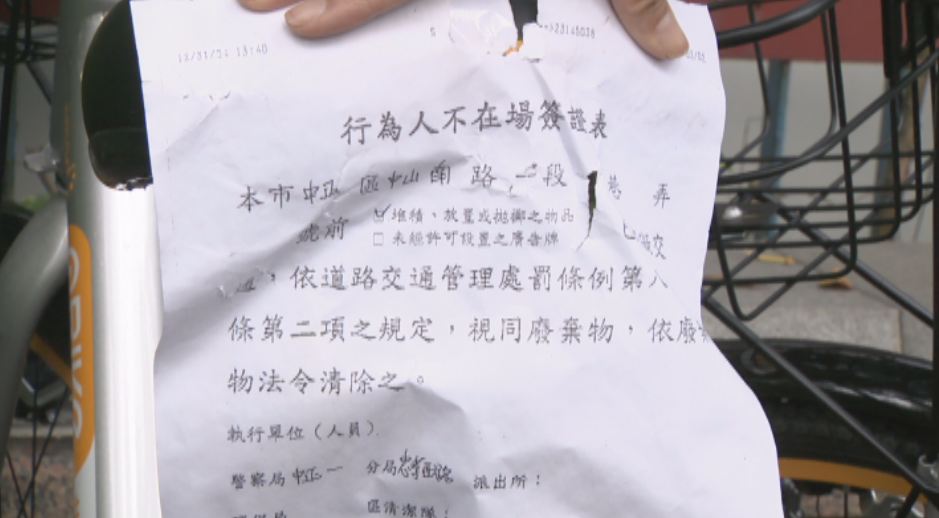 12/31/21 13:40
行為人不在場簽證表
本市中正區中山南路一段 巷 弄
號前 ☑堆積、放置或拋擲之物品
□未經許可設置之廣告牌
，依道路交通管理處罰條例第八
條第二項之規定，視同廢棄物，依廢
物法令清除之。
執行單位（人員）
警察局中正一分局 派出所：
區清潔隊：
oBIKE